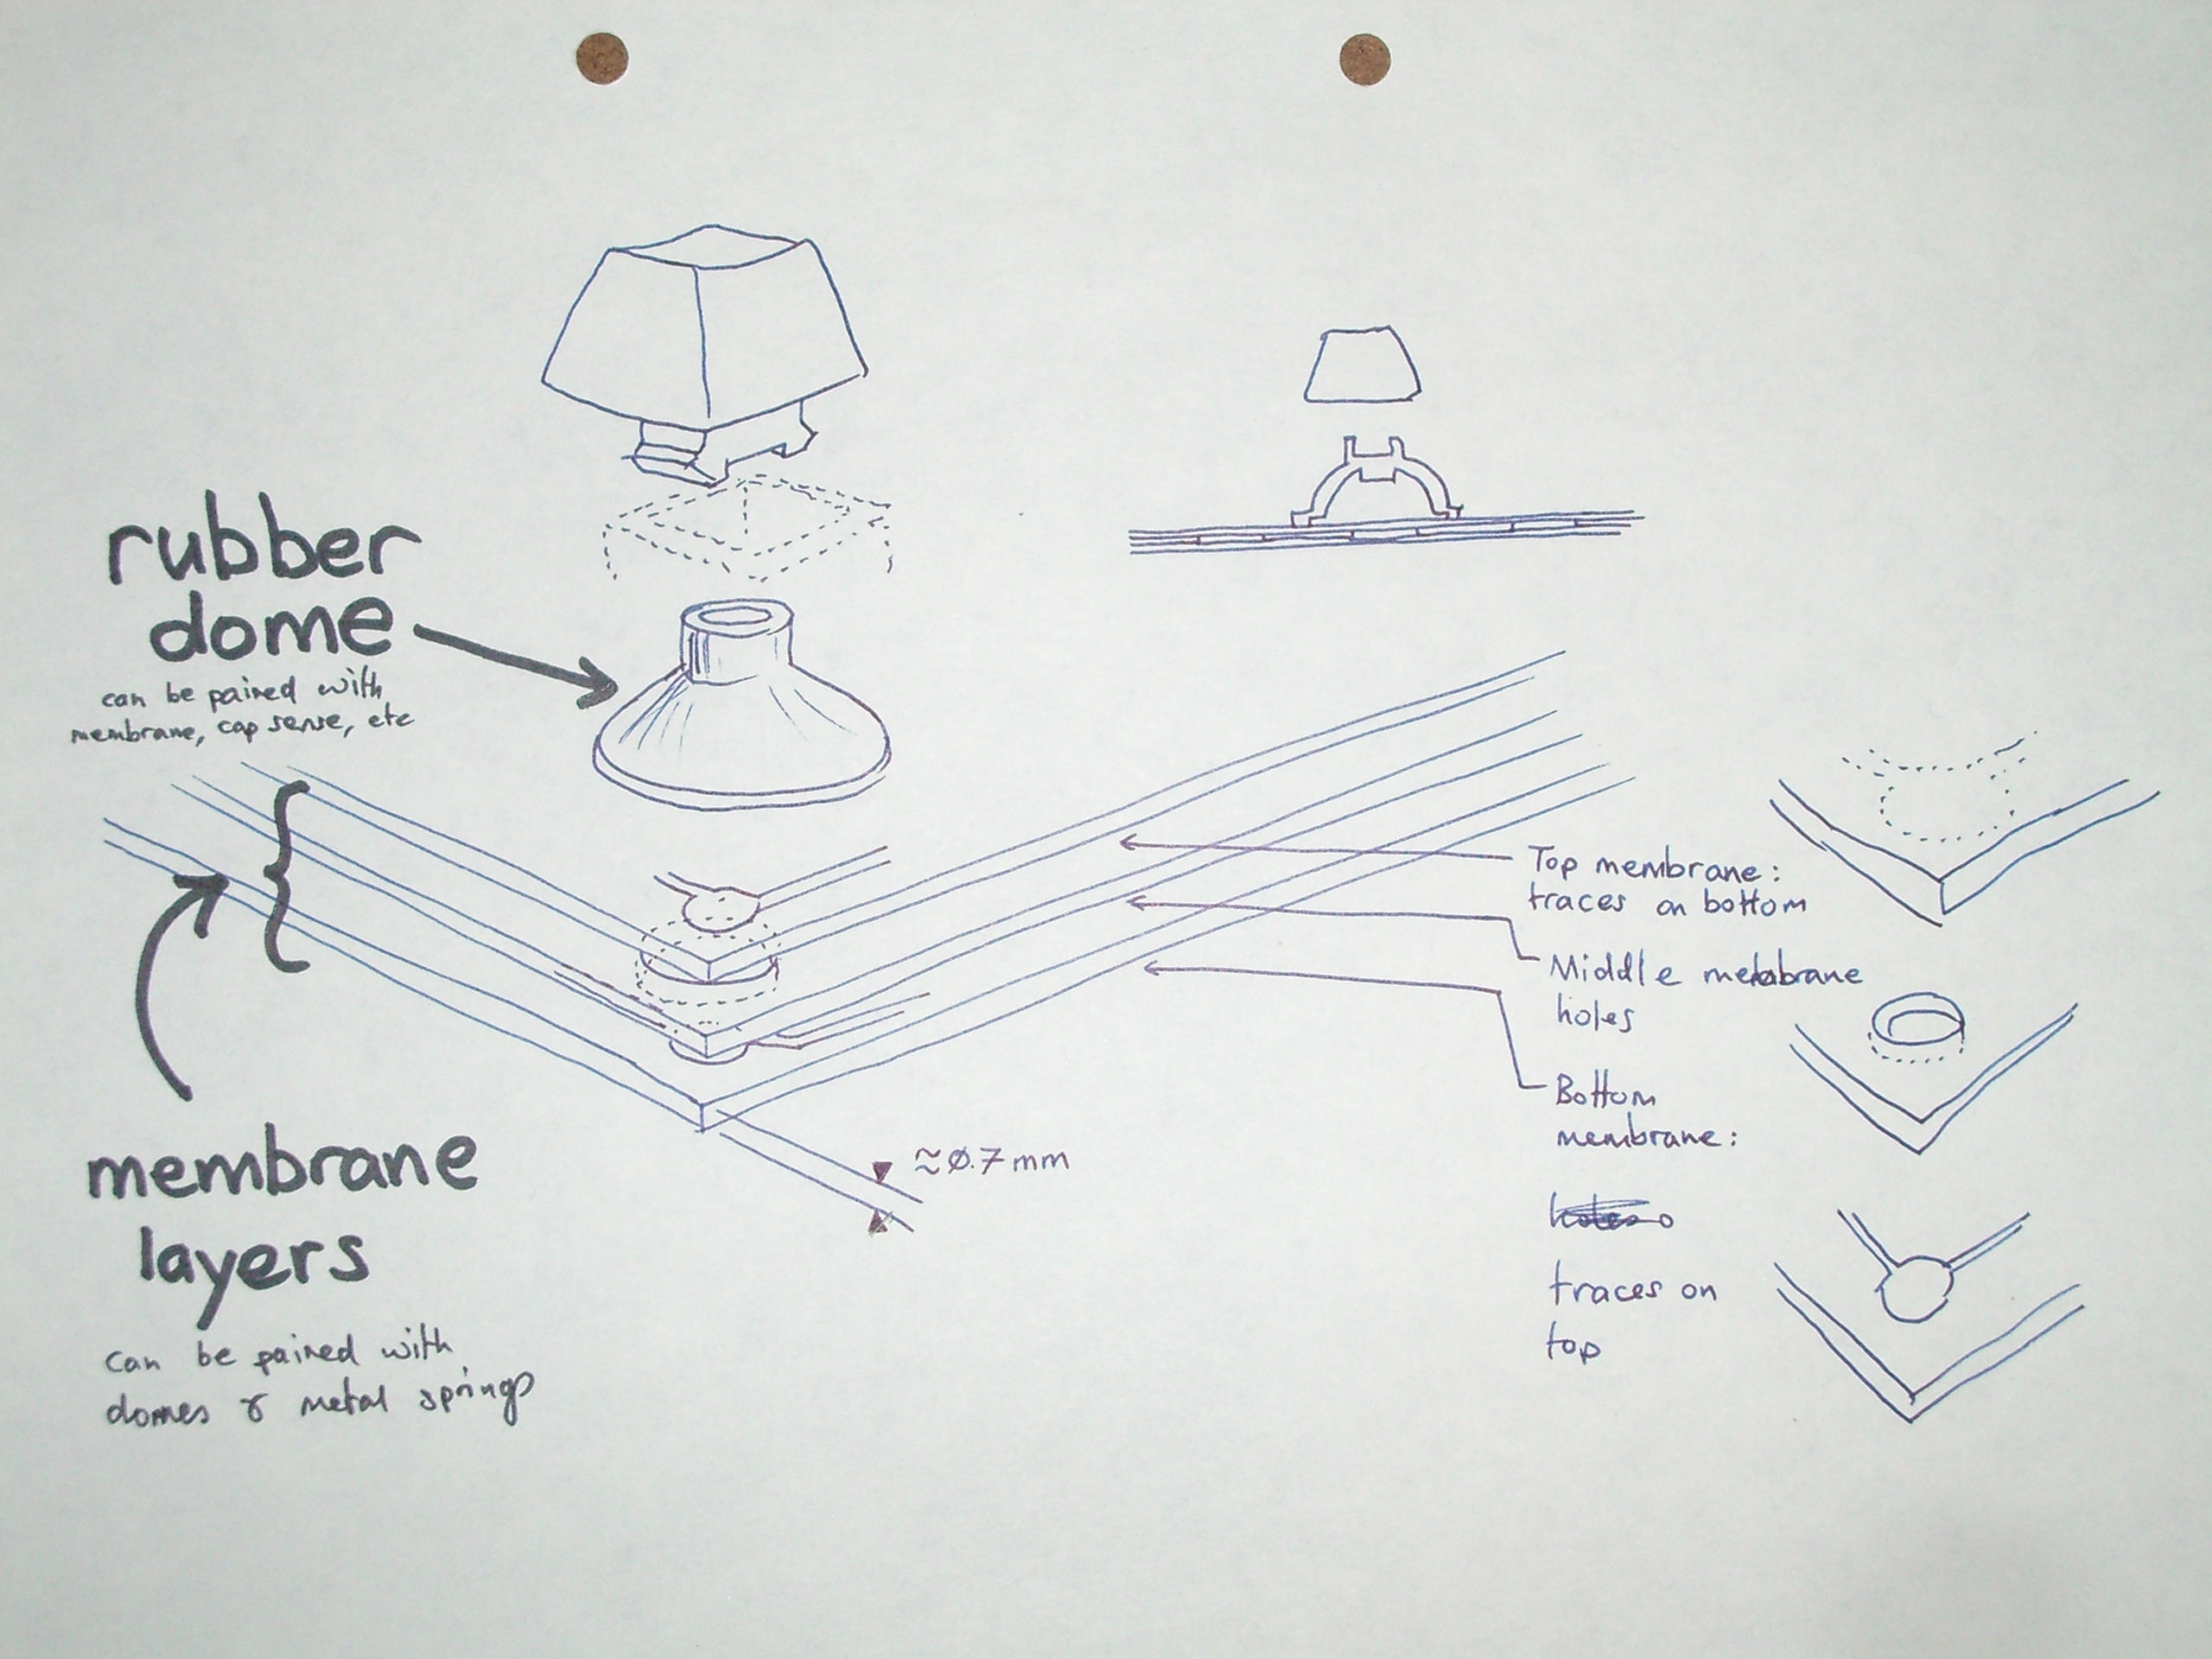 rubber
dome
can be paired with
membrane, cap sense, etc
Top membrane:
traces on bottom
Middle membrane
holes
Bottom
membrane:
≈0.7mm
membrane
layers
traces on
top
can be paired with
domes & metal springs